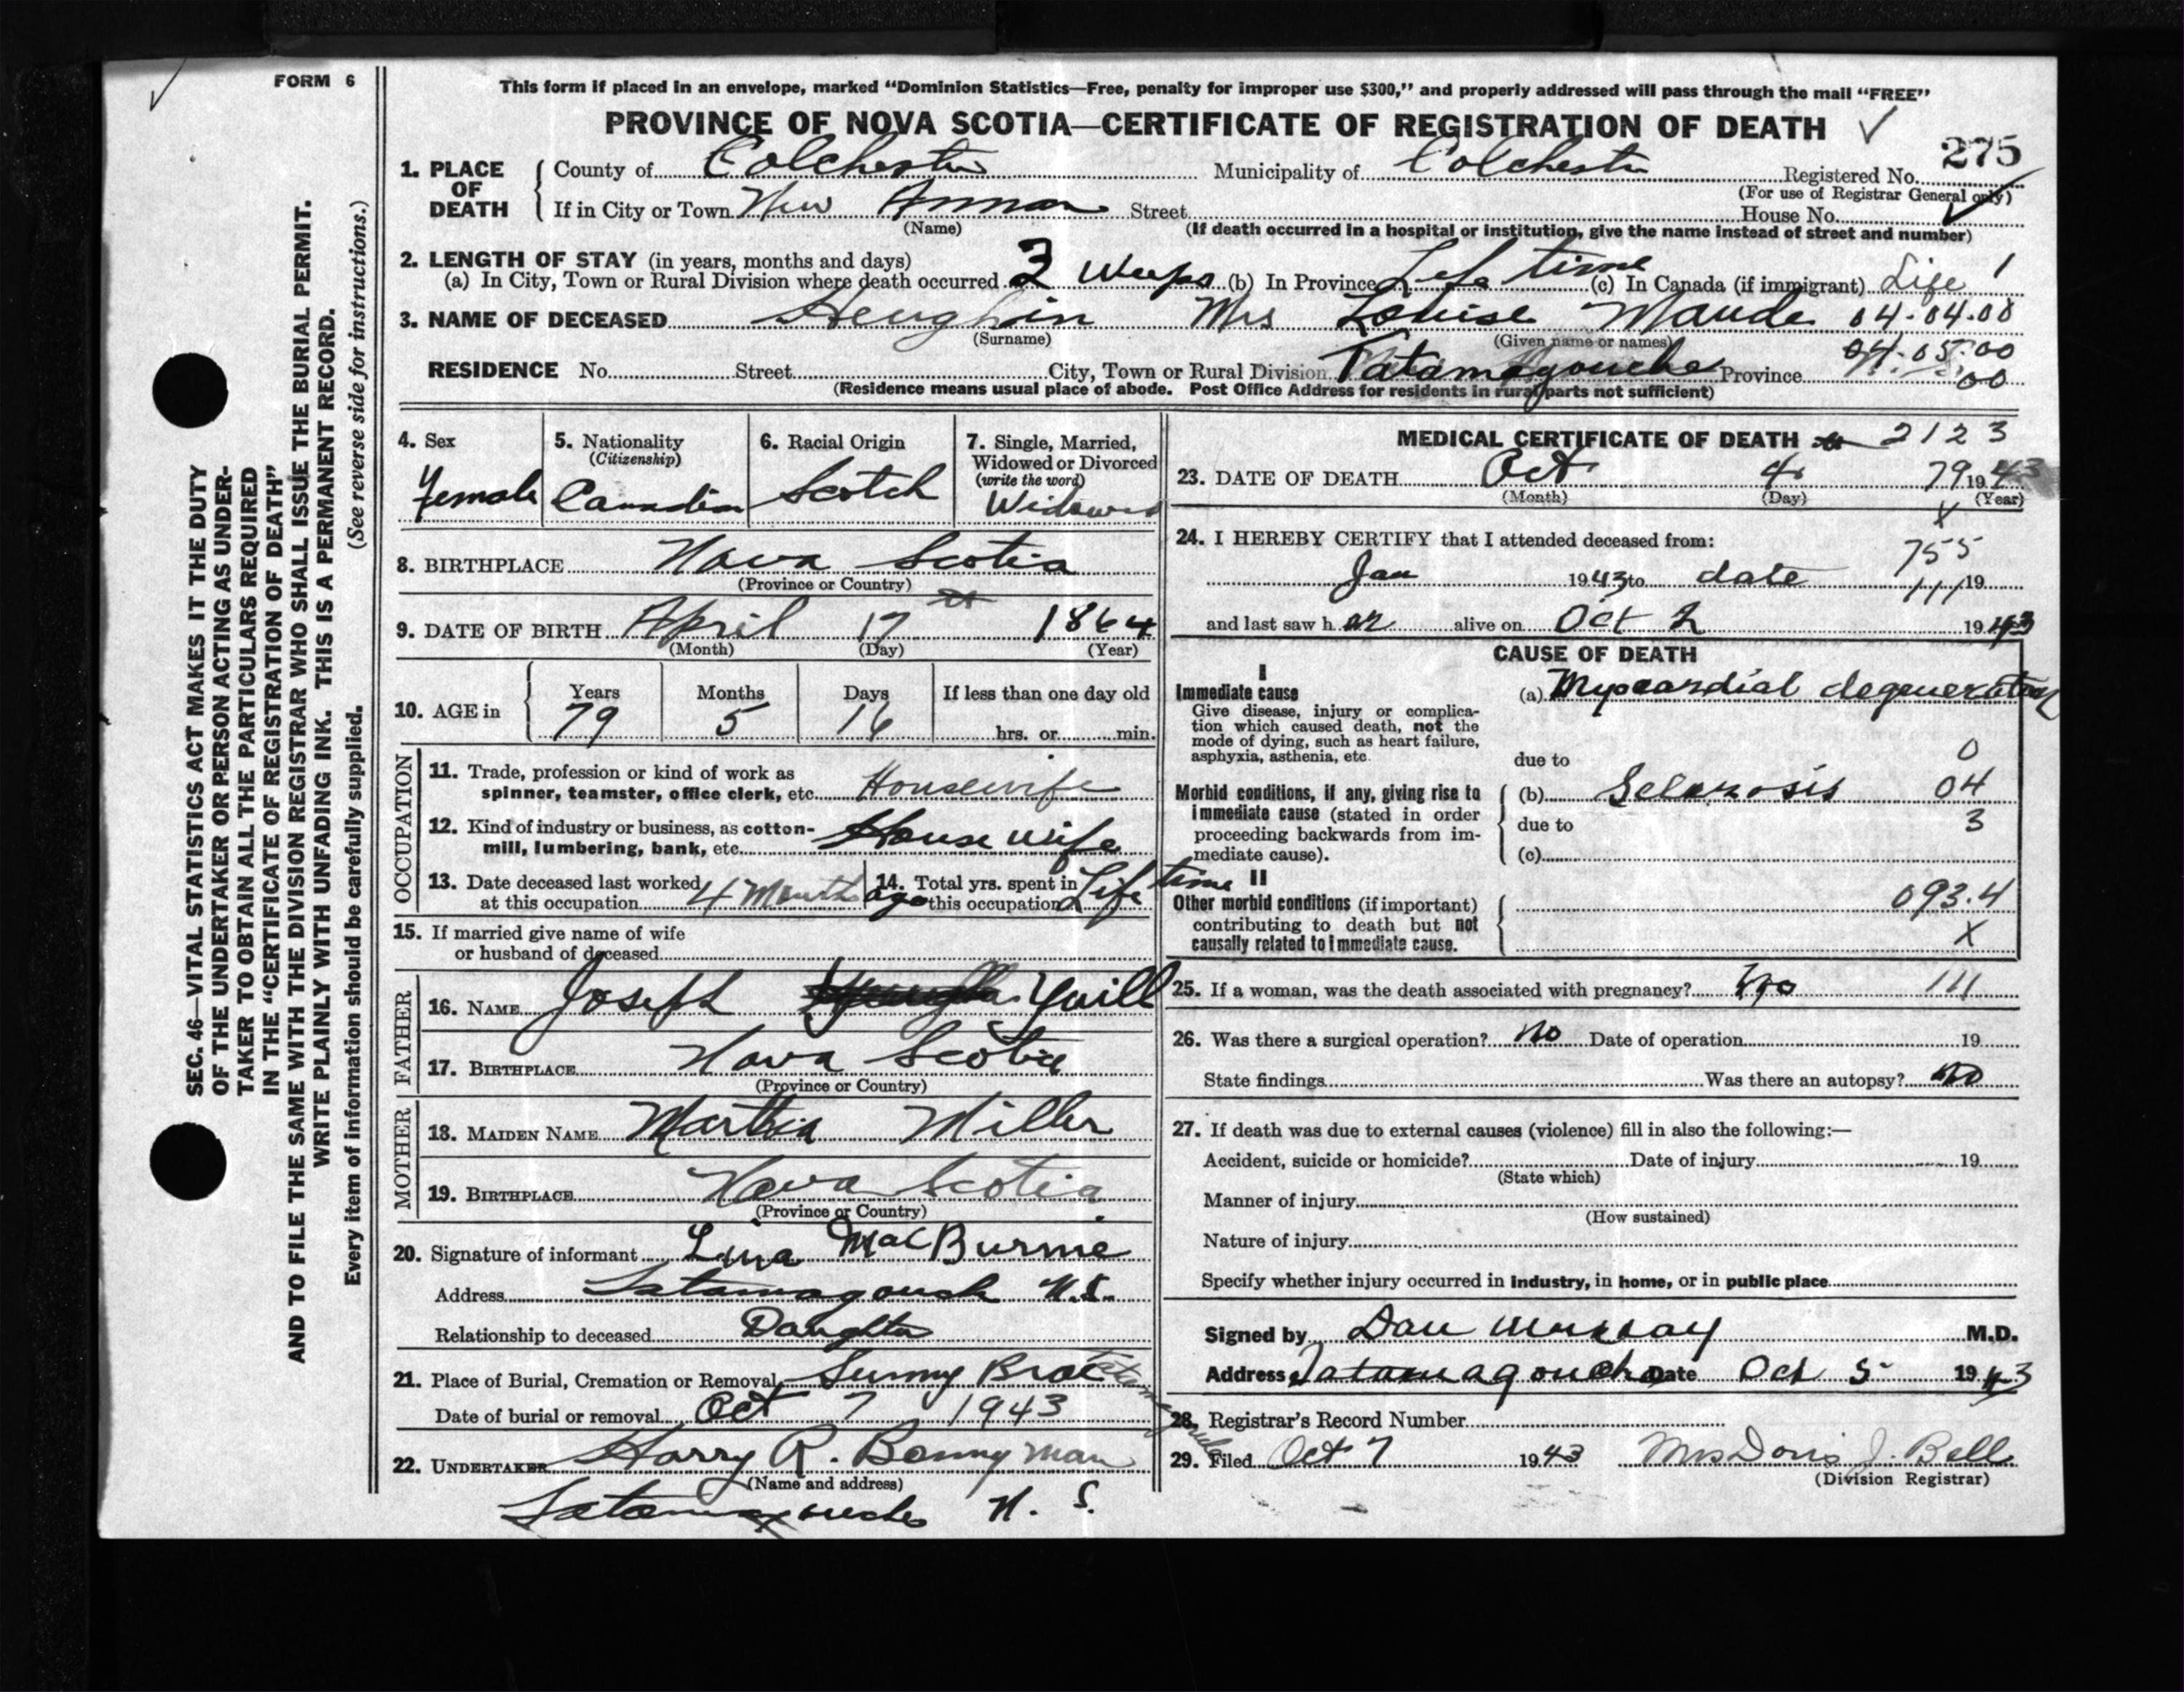 FORM 6
SEC. 46—VITAL STATISTICS ACT MAKES IT THE DUTY
OF THE UNDERTAKER OR PERSON ACTING AS UNDER-
TAKER TO OBTAIN ALL THE PARTICULARS REQUIRED
IN THE "CERTIFICATE OF REGISTRATION OF DEATH"
AND TO FILE THE SAME WITH THE DIVISION REGISTRAR WHO SHALL ISSUE THE BURIAL PERMIT.
WRITE PLAINLY WITH UNFADING INK. THIS IS A PERMANENT RECORD.
Every item of information should be carefully supplied. (See reverse side for instructions.)
This form if placed in an envelope, marked "Dominion Statistics—Free, penalty for improper use $300," and properly addressed will pass through the mail "FREE"
PROVINCE OF NOVA SCOTIA—CERTIFICATE OF REGISTRATION OF DEATH
275
1. PLACE OF DEATH County of Colchester Municipality of Colchester Registered No.
(For use of Registrar General only)
If in City or Town New Annan Street House No.
(Name) (If death occurred in a hospital or institution, give the name instead of street and number)
2. LENGTH OF STAY (in years, months and days)
(a) In City, Town or Rural Division where death occurred 3 Weeks (b) In Province Life time (c) In Canada (if immigrant) Life 1
3. NAME OF DECEASED Mrs Louise Maude 04.04.00
(Surname) (Given name or names) 04.05.00
RESIDENCE No. Street City, Town or Rural Division Tatamagouche Province 00
(Residence means usual place of abode. Post Office Address for residents in rural parts not sufficient)
4. Sex Female
5. Nationality (Citizenship) Canadian
6. Racial Origin Scotch
7. Single, Married, Widowed or Divorced (write the word) Widowed
8. BIRTHPLACE Nova Scotia
(Province or Country)
9. DATE OF BIRTH April 17 1864
(Month) (Day) (Year)
10. AGE in Years Months Days If less than one day old
79 5 16 hrs. or min.
OCCUPATION
11. Trade, profession or kind of work as
spinner, teamster, office clerk, etc. Housewife
12. Kind of industry or business, as cotton-
mill, lumbering, bank, etc. House wife
13. Date deceased last worked at this occupation 4 Months ago
14. Total yrs. spent in this occupation Life time
15. If married give name of wife
or husband of deceased
FATHER
16. NAME Joseph Yuill
17. BIRTHPLACE Nova Scotia
(Province or Country)
MOTHER
18. MAIDEN NAME Martha Miller
19. BIRTHPLACE Nova Scotia
(Province or Country)
20. Signature of informant Lina MacBurnie
Address Tatamagouche N.S.
Relationship to deceased Daughter
21. Place of Burial, Cremation or Removal Sunny Brae Tatamagouche
Date of burial or removal Oct 7 1943
22. UNDERTAKER Harry R. Bonnyman
(Name and address)
Tatamagouche N. S.
MEDICAL CERTIFICATE OF DEATH 2123
23. DATE OF DEATH Oct 4 79 1943
(Month) (Day) (Year)
X
24. I HEREBY CERTIFY that I attended deceased from: 755
Jan 1943 to date 111 19
and last saw her alive on Oct 2 1943
CAUSE OF DEATH
I
Immediate cause (a) Myocardial degeneration
Give disease, injury or complica-
tion which caused death, not the
mode of dying, such as heart failure,
asphyxia, asthenia, etc. due to 0
Morbid conditions, if any, giving rise to (b) Sclerosis 04
immediate cause (stated in order due to 3
proceeding backwards from im- (c)
mediate cause).
II
Other morbid conditions (if important) 093.4
contributing to death but not
causally related to immediate cause. X
25. If a woman, was the death associated with pregnancy? No 111
26. Was there a surgical operation? No Date of operation 19
State findings Was there an autopsy? No
27. If death was due to external causes (violence) fill in also the following:—
Accident, suicide or homicide? Date of injury 19
(State which)
Manner of injury
(How sustained)
Nature of injury
Specify whether injury occurred in industry, in home, or in public place
Signed by Dan Murray M.D.
Address Tatamagouche Date Oct 5 1943
28. Registrar's Record Number
29. Filed Oct 7 1943 Mrs Doris J. Bell
(Division Registrar)